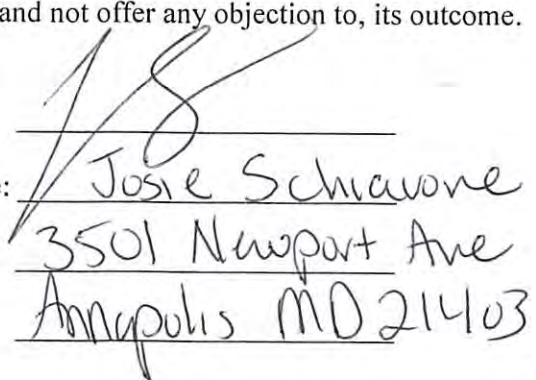 and not offer any objection to, its outcome.
: Josie Schiavone
3501 Newport Ave
Annapolis MD 21403